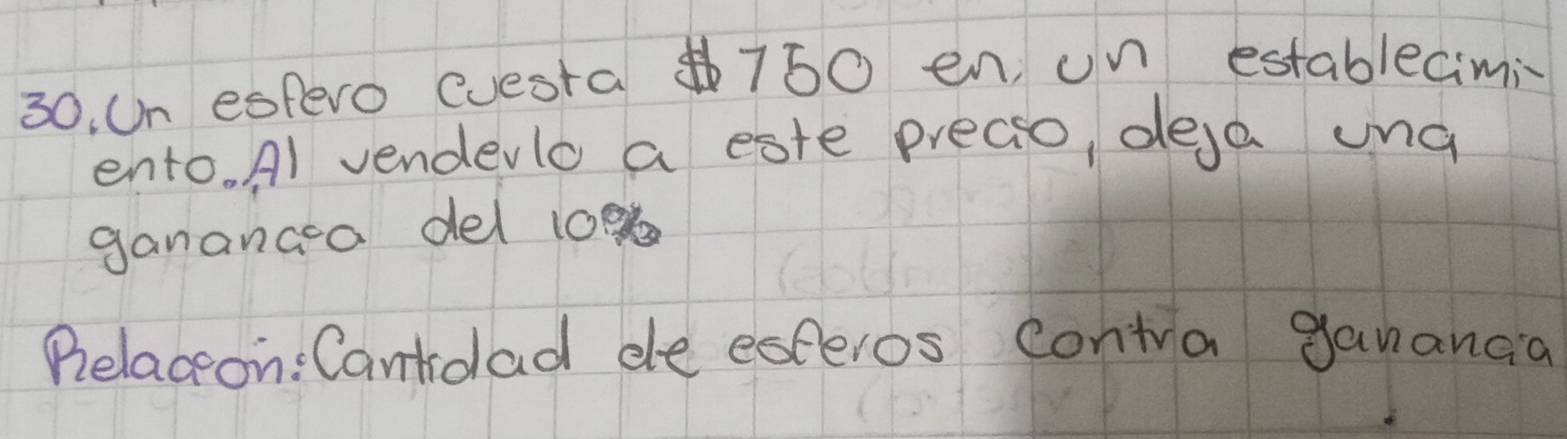 30. Un esfero cuesta $750 en un establecimi-
ento. Al venderlo a este precio, deja una
ganancia del 10%
Relación: Cantidad de esferos contra ganancia